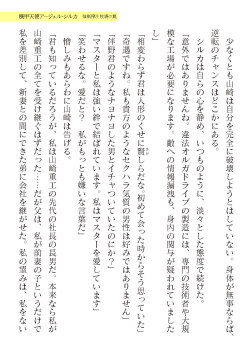 機甲天使アージェル・シルカ
少なくとも山崎は自分を完全に破壊しようとはしていない。ならば、
逆転のチャンスはどこかにある。
シルカは自らの心を静め、いつものように、淡々とした態度で続けた。
「意外ではありません。違法オルガドライブの製造には、専門の技術者や大規
模な工場が必要になります。敵への情報漏洩も、身内の関与が疑われていまし
た」
「相変わらず君は人形のくせに賢しらだな。初めて会った時からそう思っていた」
「奇遇ですね。私もあなたのようなセクハラ気質の男性は好みではありません」
「伴野君のようなナヨナヨした男とイチャついていたものな」
「マスターと私は強い絆で結ばれています。私はマスターを愛しています」
「笑わせるな。愛だと？　私がもっとも嫌いな言葉だ」
憎しみは吐き捨てる。
「君も知っているだろうが、私は山崎重工の先代の社長の長男だ。本来なら私が
山崎重工の全てを継ぐはずだった……だが父は、私が前妻の子というだけで
私を差別して、新妻との間にできた弟に会社を継がせた。私の望みは、私をない